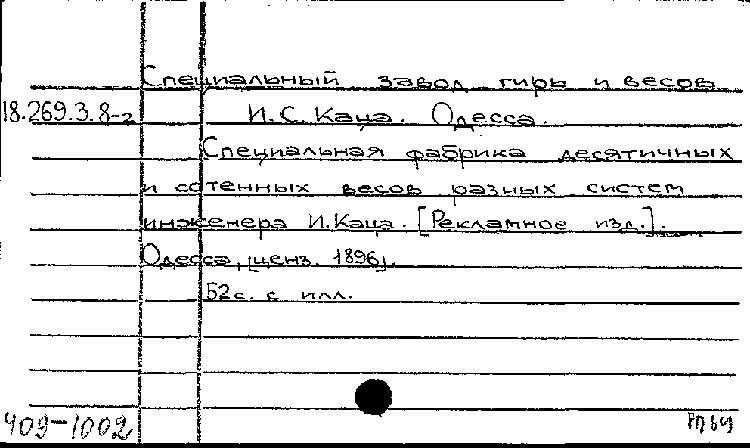 Специальный завод гирь и весов
18.269.3.8-2 И.С. Каца. Одесса.
Специальная фабрика десятичных
и сотенных весов разных систем
инженера И. Каца. [Рекламное изд.].
Одесса, [ценз. 1896].
52 с. с илл.
409-1002